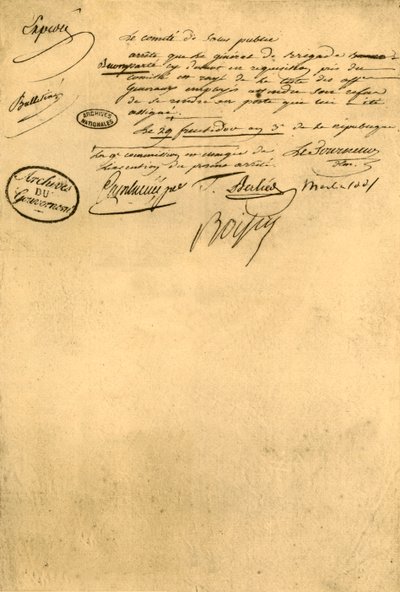 Expédié
Le comité de Salut public
arrête que le général de Brigade
Buonaparte cy devant en requisition près du
Comité est rayé de la liste des off.
Généraux employés attendu son refus
de se rendre au poste qui lui a été
assigné
Le 29 fructidor an 3e de la république
La 9e commission est chargée de
l'exécution du présent arrêté
Le Tourneur
Cambacérès T. Berlier Merlin
Boissy
ARCHIVES
NATIONALES
Archives
DU
Gouvernemt